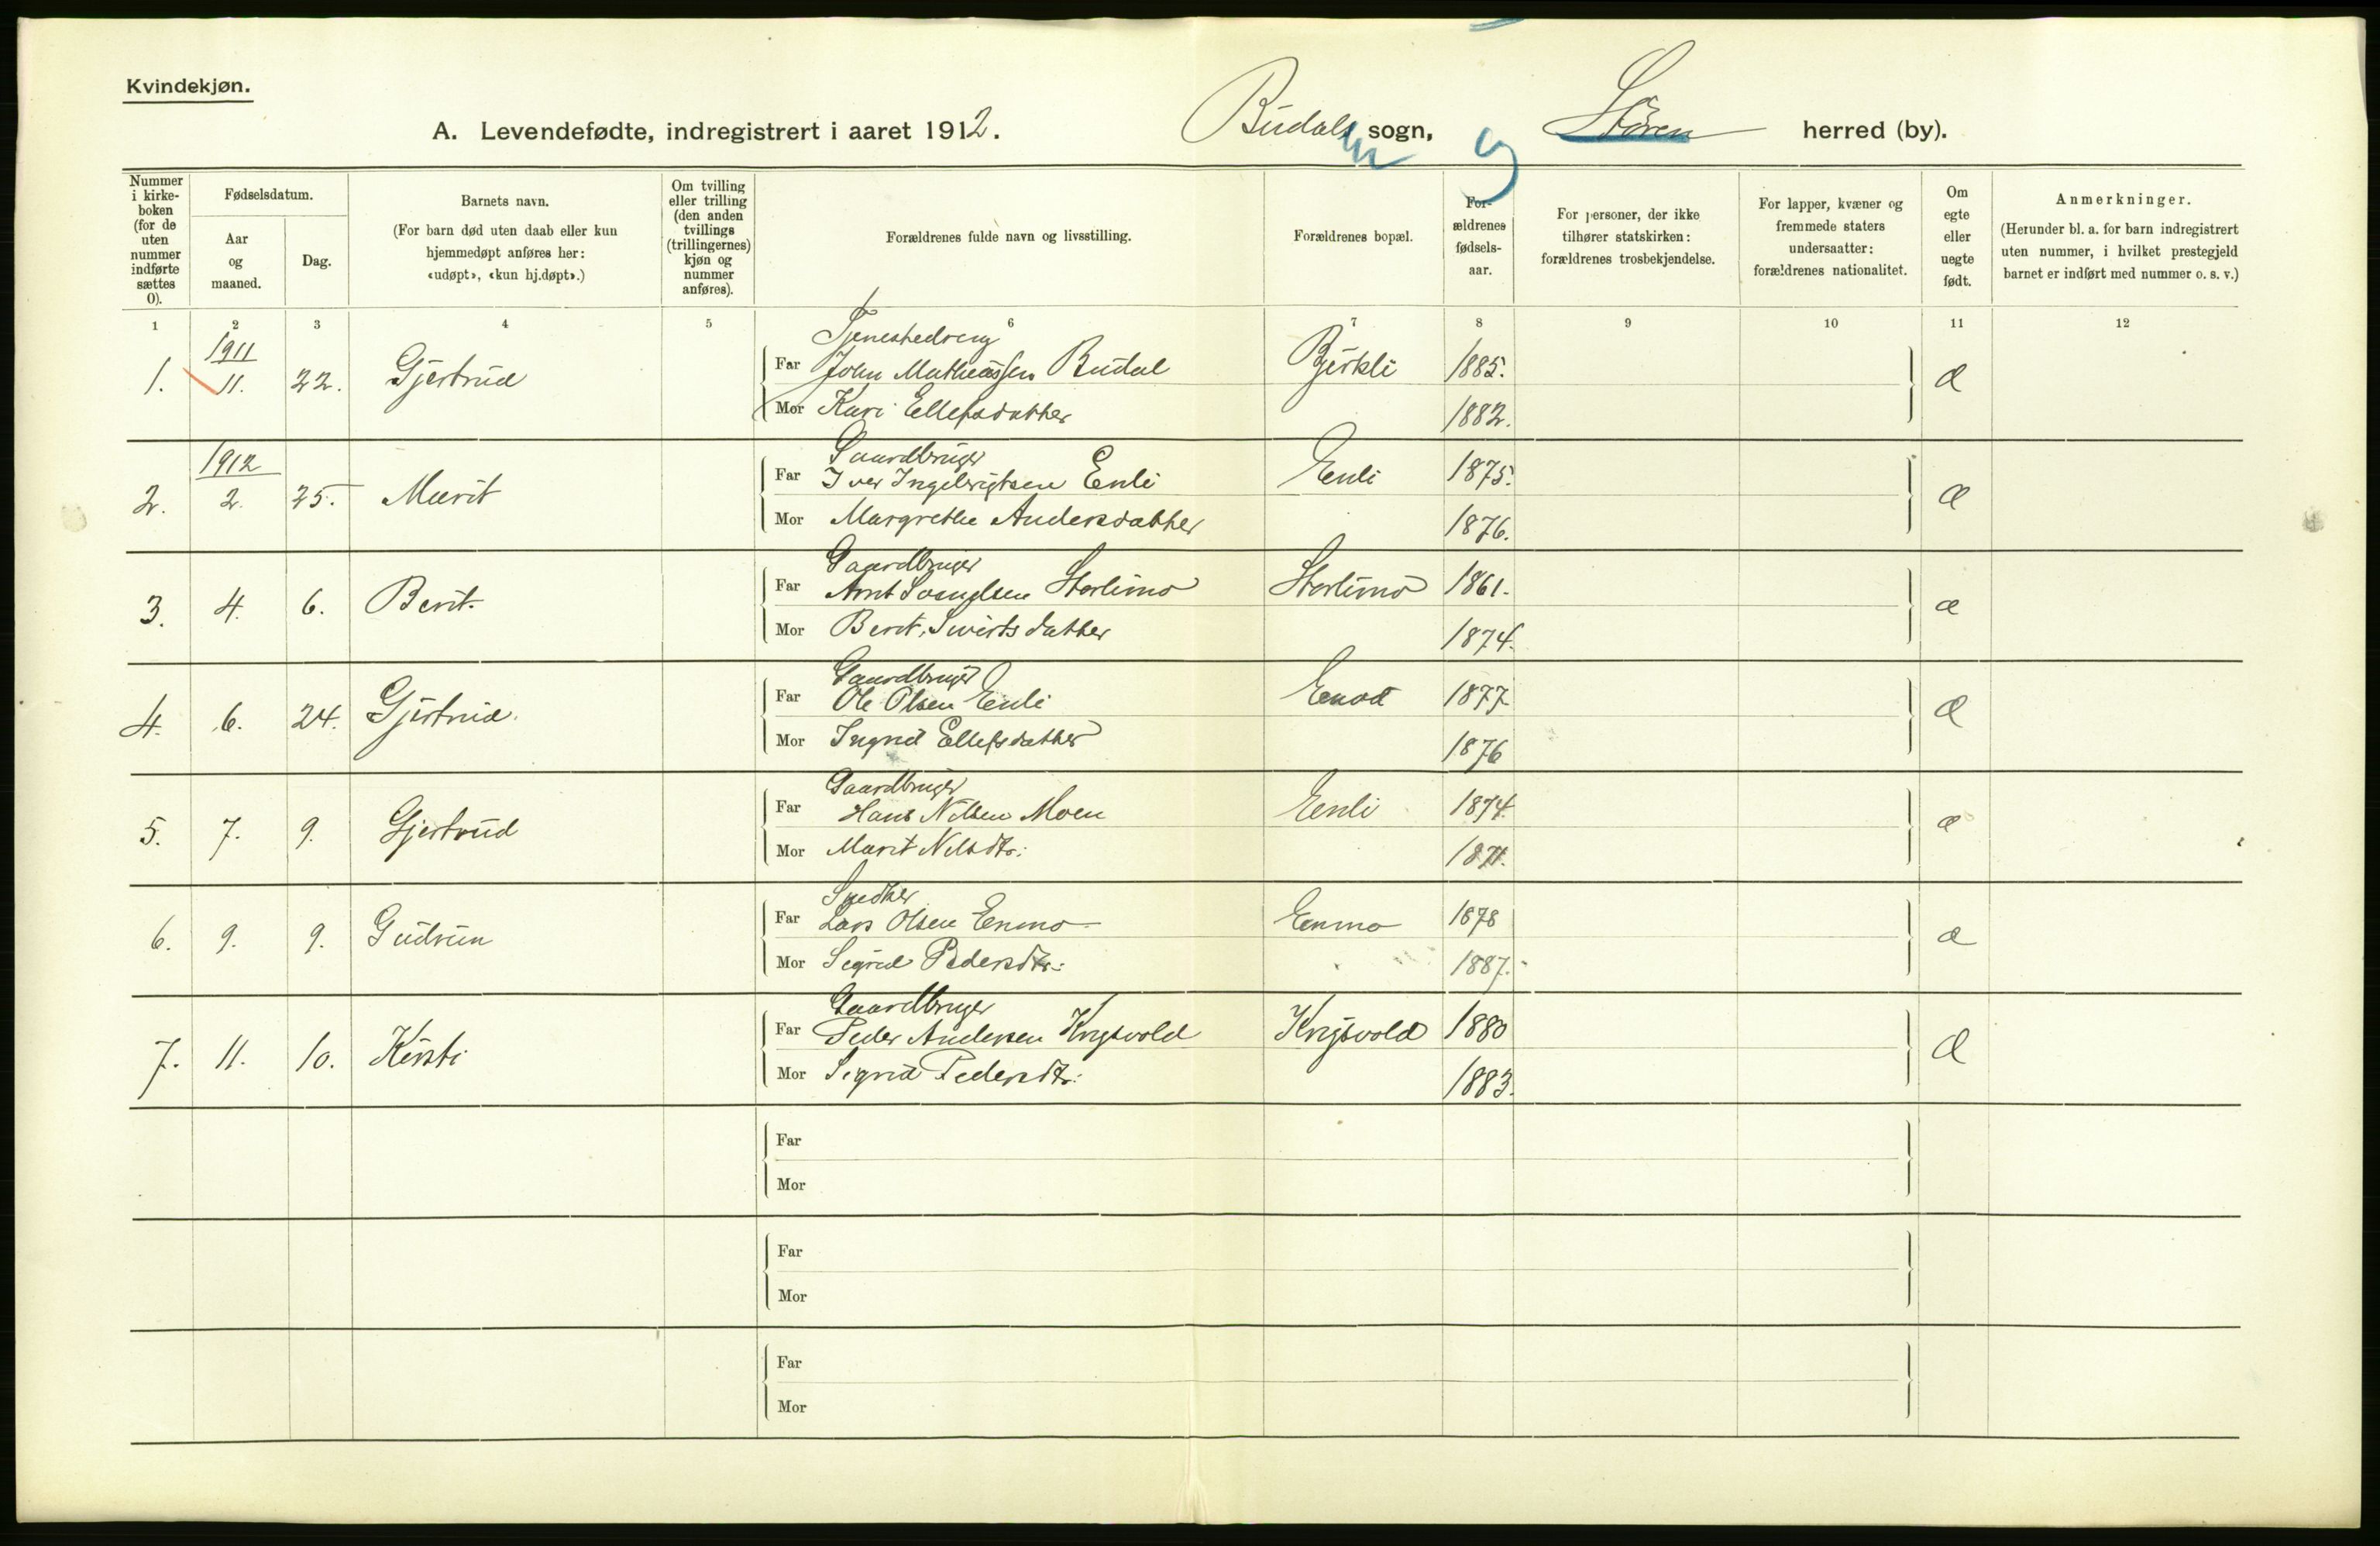 Kvindekjøn.
A. Levendefødte, indregistrert i aaret 1912. Budals sogn, og Støren herred (by).
Nummer i kirke-boken (for de uten nummer indførte sættes 0).
Fødselsdatum.
Aar og maaned.
Dag.
Barnets navn.
(For barn død uten daab eller kun hjemmedøpt anføres her: «udøpt», «kun hj.døpt».)
Om tvilling eller trilling (den anden tvillings (trillingernes) kjøn og nummer anføres).
Forældrenes fulde navn og livsstilling.
Forældrenes bopæl.
For-ældrenes fødsels-aar.
For personer, der ikke tilhører statskirken: forældrenes trosbekjendelse.
For lapper, kvæner og fremmede staters undersaatter: forældrenes nationalitet.
Om egte eller uegte født.
Anmerkninger.
(Herunder bl. a. for barn indregistrert uten nummer, i hvilket prestegjeld barnet er indført med nummer o. s. v.)
1 2 3 4 5 6 7 8 9 10 11 12
1911 Tjenestedreng
1. 11. 22. Gjertrud Far John Matheassen Budal Bjerkli 1885. æ
Mor Kari Ellefsdatter 1882.
1912 Gaardbruger
2. 2. 25. Marit Far Iver Ingebrigtsen Enli Enli 1875. æ
Mor Margrethe Andersdatter 1876.
Gaardbruger
3. 4. 6. Berit Far Arnt Storlimo Storlimo 1861. æ
Mor Berit Sivertsdatter 1874.
Gaardbruger
4. 6. 24. Gjertrud Far Ole Olsen Enli Enod 1877 æ
Mor Ingrid Ellefsdatter 1876
Gaardbruger
5. 7. 9. Gjertrud Far Hans Nilsen Moen Enli 1874. æ
Mor Marit Nilsdtr:
Snedker
6. 9. 9. Gudrun Far Lars Olsen Enmo Enmo 1878 æ
Mor Sigrid Pedersdtr: 1887.
Gaardbruger
7. 11. 10. Kirsti Far Peder Andersen Krigsvold Krigsvold 1880 æ
Mor Sigrid Pedersdtr: 1883.
Far
Mor
Far
Mor
Far
Mor